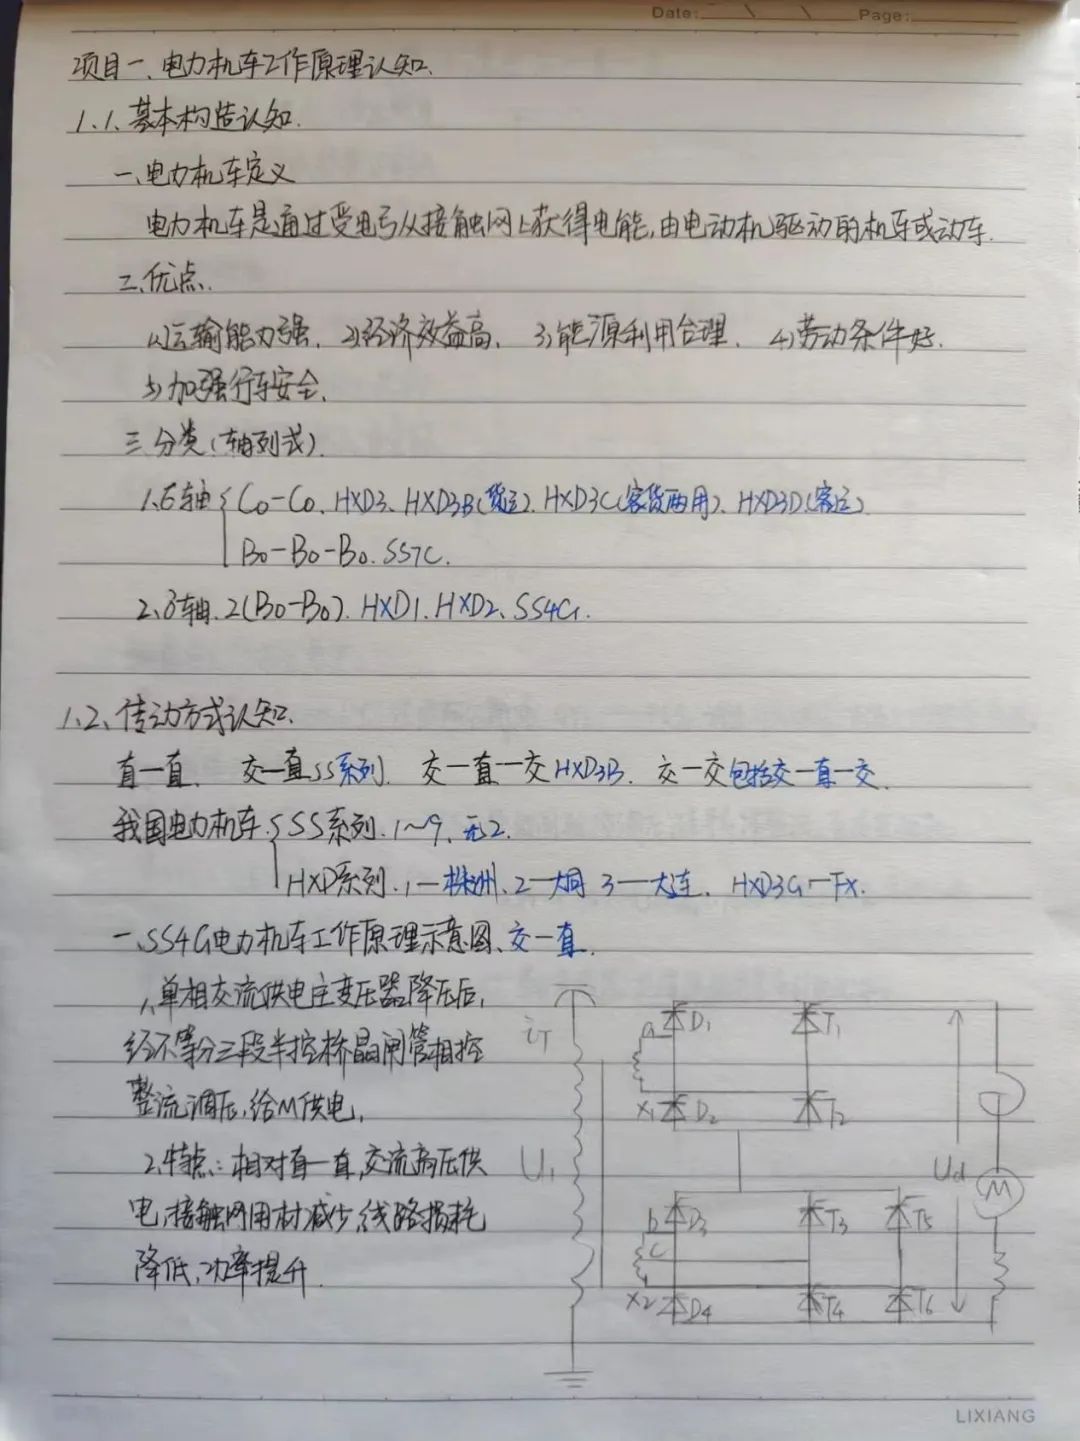 Date: \ \ Page:
项目一、电力机车工作原理认知.
1.1、基本构造认知.
一、电力机车定义
电力机车是通过受电弓从接触网上获得电能,由电动机驱动的机车或动车.
二、优点.
1)运输能力强. 2)经济效益高. 3)能源利用合理. 4)劳动条件好.
5)加强行车安全.
三、分类(轴列式).
1.6轴{C0-C0. HXD3. HXD3B(货运). HXD3C(客货两用). HXD3D(客运).
B0-B0-B0. SS7C.
2.8轴. 2(B0-B0). HXD1. HXD2、SS4G.
1.2、传动方式认知.
直一直. 交一直SS系列. 交一直一交HXD3B. 交一交包括交一直一交.
我国电力机车.{SS系列. 1~9、无2.
HXD系列. 1一株洲、2一大同 3一大连. HXD3G一FX.
一、SS4G电力机车工作原理示意图、交一直.
1、单相交流供电主变压器降压后,
经不等分三段半控桥晶闸管相控
整流调压,给M供电,
2、特点:相对直一直,交流高压供
电,接触网用材减少,线路损耗
降低,功率提升.
iT
U1
a D1 T1
x1 D2 T2
Ud
M
b D3 T3 T5
c
x2 D4 T4 T6
LIXIANG